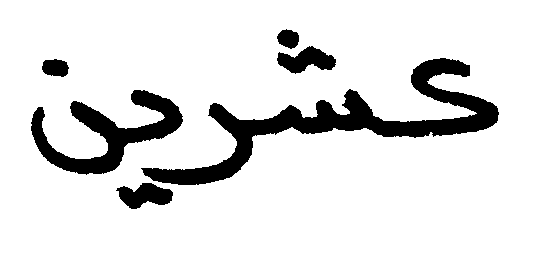 كشرين